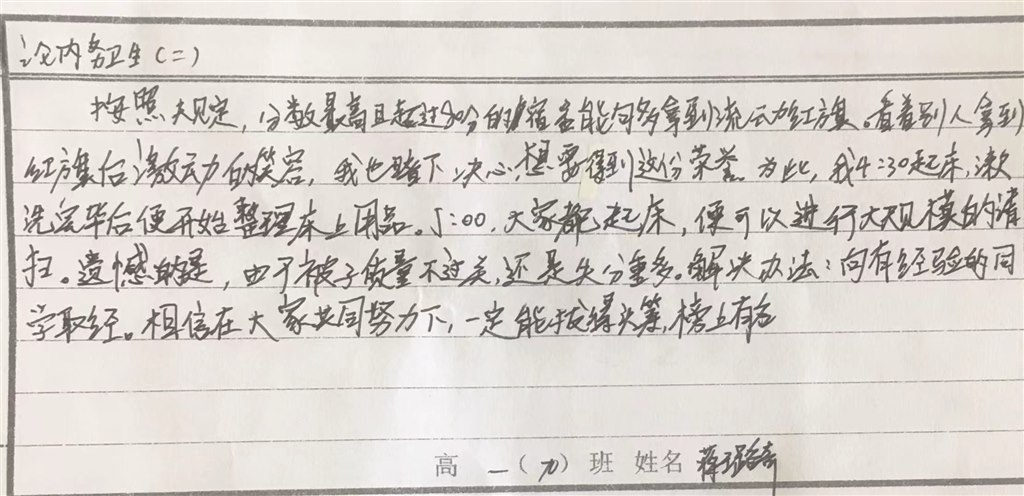 论内务卫生(二)
按照大规定,分数最高且超过90分的宿舍能向多拿到流动红旗。看着别人拿到
红旗后激动的笑容,我也暗下决心,想要得到这份荣誉。为此,我4:30起床,漱
洗完毕后便开始整理床上用品。5:00,大家都起床,便可以进行大规模的清
扫。遗憾的是,由于被子质量不过关,还是失分重多。解决办法:向有经验的同
学取经。相信在大家共同努力下,一定能拔得头筹,榜上有名
高 一(九)班 姓名 蒋